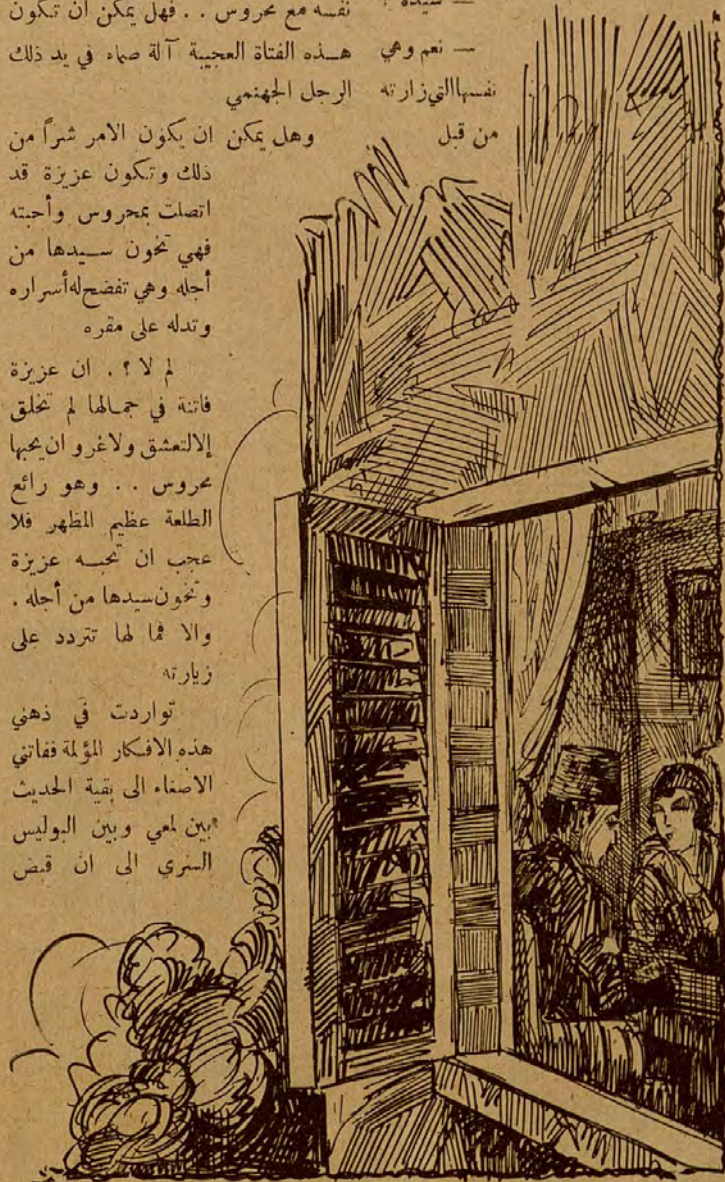 — سيدة ؟
— نعم وهي
نفسها التي زارته
من قبل
نفسه مع محروس . . فهل يمكن ان تكون
هذه الفتاة العجيبة آلة صماء في يد ذلك
الرجل الجهنمي
وهل يمكن ان يكون الامر شراً من
ذلك وتكون عزيزة قد
اتصلت بمحروس وأحبته
فهي تخون سيدها من
أجله وهي تفضح له أسراره
وتدله على مقره
لم لا ؟ . ان عزيزة
فاتنة في جمالها لم تخلق
إلا لتعشق ولا غرو ان يحبها
محروس . . وهو رائع
الطلعة عظيم المظهر فلا
عجب ان تحبه عزيزة
وتخون سيدها من أجله .
والا فما لها تتردد على
زيارته
تواردت في ذهني
هذه الافكار المؤلمة ففاتني
الاصغاء الى بقية الحديث
بين لمعي وبين البوليس
السري الى ان قبض